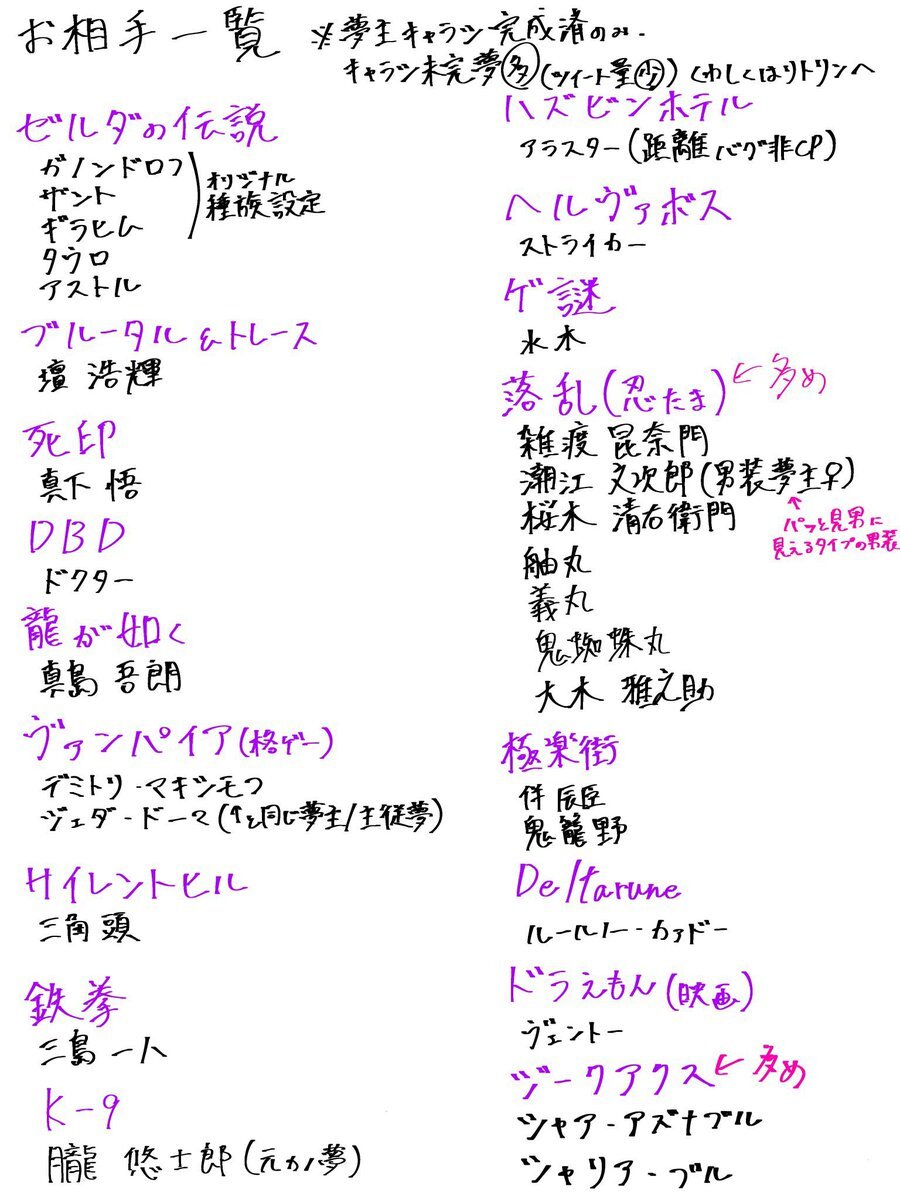 お相手一覧
※夢主キャラシ完成済のみ.
キャラシ未完夢多(ツイート量少) くわしくはリトリンへ
ゼルダの伝説
ガノンドロフ
ザント
ギラヒム
オリジナル
種族設定
タウロ
アストル
ブルータル&トレース
壇 浩輝
死印
真下 悟
DBD
ドクター
龍が如く
真島 吾朗
ヴァンパイア(格ゲー)
デミトリ・マキシモフ
ジェダ・ドーマ(↑と同じ夢主/主従夢)
サイレントヒル
三角頭
鉄拳
三島 一八
K-9
朧 悠士郎(元カノ夢)
ハズビンホテル
アラスター(距離バグ非CP)
ヘルヴァボス
ストライカー
ゲ謎
水木
落乱(忍たま)←多め
雑渡 昆奈門
潮江 文次郎(男装夢主♀)
↑
パッと見男に
見えるタイプの男装
桜木 清右衛門
舳丸
義丸
鬼蜘蛛丸
大木 雅之助
極楽街
伴 辰臣
鬼籠野
Deltarune
ルールノー・カァドー
ドラえもん(映画)
ヴェントー
ジークアクス←多め
シャア・アズナブル
シャリア・ブル